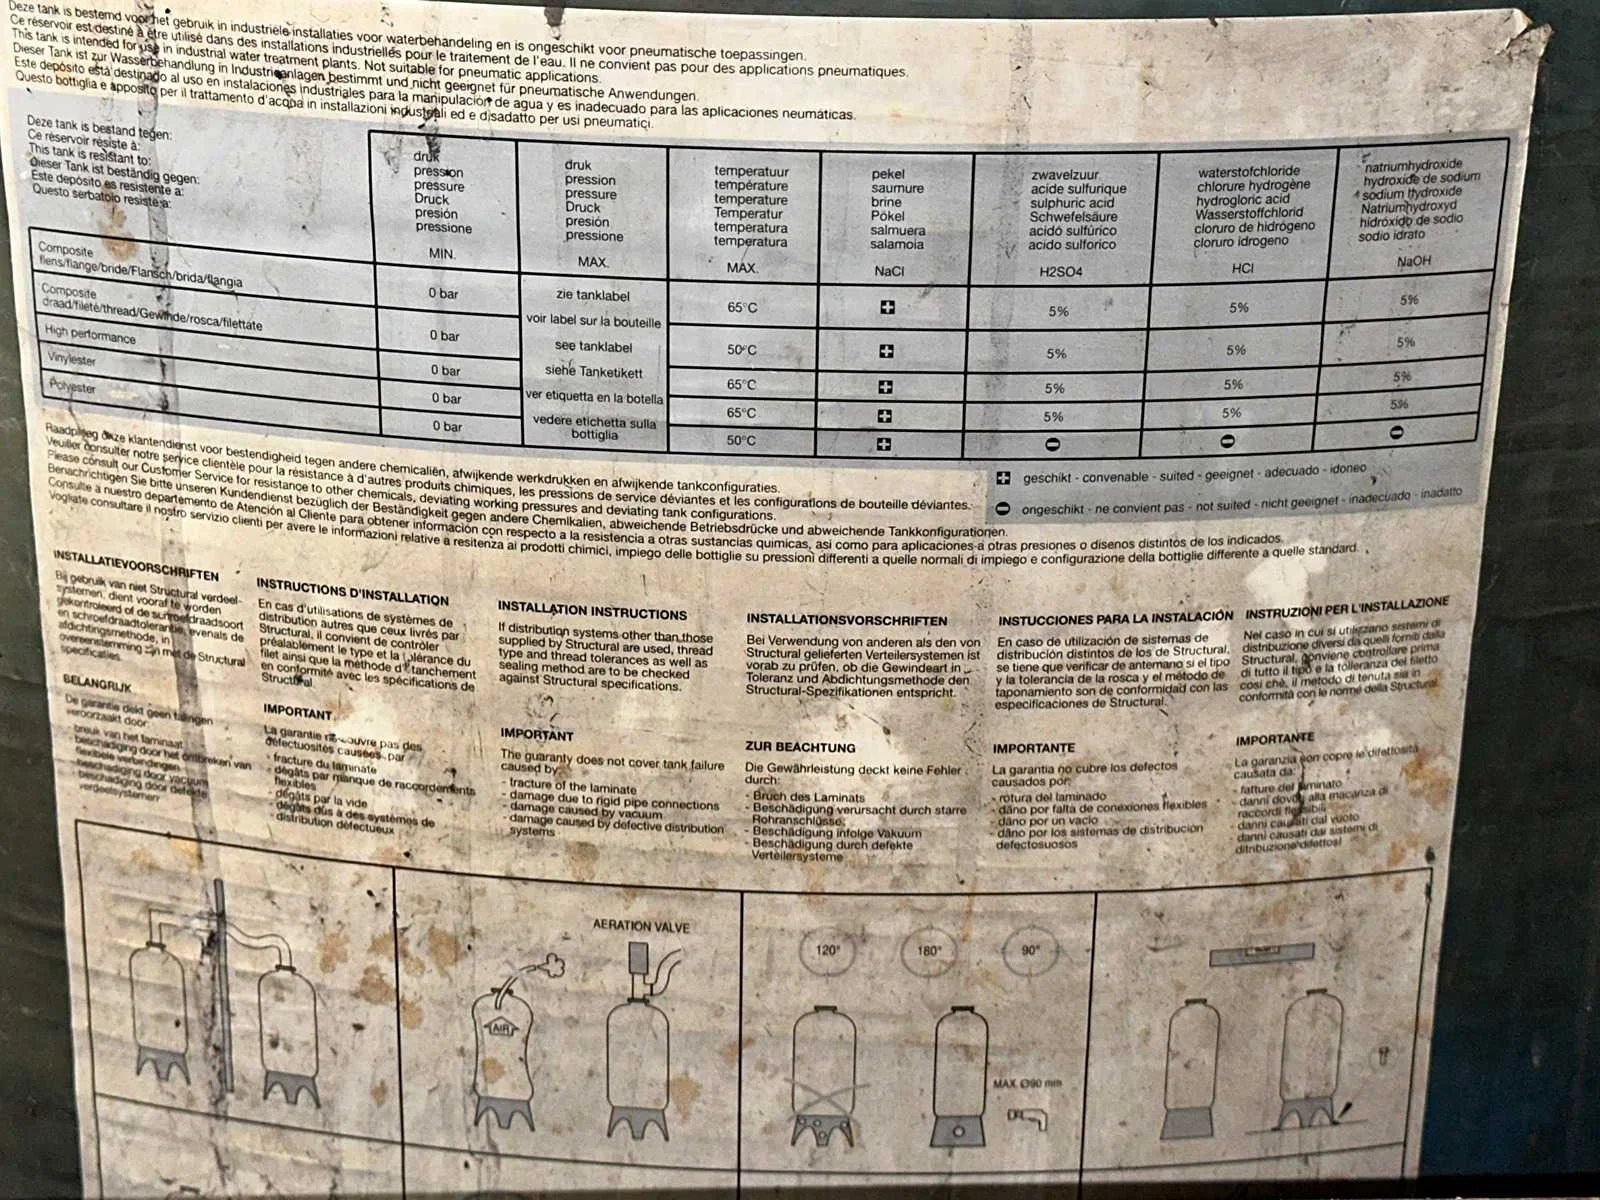 Deze tank is bestemd voor het gebruik in industriële installaties voor waterbehandeling en is ongeschikt voor pneumatische toepassingen.
Ce réservoir est destiné à être utilisé dans des installations industrielles pour le traitement de l'eau. Il ne convient pas pour des applications pneumatiques.
This tank is intended for use in industrial water treatment plants. Not suitable for pneumatic applications.
Dieser Tank ist zur Wasserbehandlung in Industrieanlagen bestimmt und nicht geeignet für pneumatische Anwendungen.
Este depósito está destinado al uso en instalaciones industriales para la manipulación de agua y es inadecuado para las aplicaciones neumáticas.
Questo bottiglia e apposito per il trattamento d'acqba in installazioni industriali ed e disadatto per usi pneumatici.
Deze tank is bestand tegen:
Ce réservoir résiste à:
This tank is resistant to:
Dieser Tank ist beständig gegen:
Este depósito es resistente a:
Questo serbatoio resiste a:
druk
pression
pressure
Druck
presión
pressione
MIN.
druk
pression
pressure
Druck
presión
pressione
MAX.
temperatuur
température
temperature
Temperatur
temperatura
temperatura
MAX.
pekel
saumure
brine
Pökel
salmuera
salamoia
NaCl
zwavelzuur
acide sulfurique
sulphuric acid
Schwefelsäure
acidó sulfúrico
acido sulforico
H2SO4
waterstofchloride
chlorure hydrogène
hydrogloric acid
Wasserstoffchlorid
cloruro de hidrógeno
cloruro idrogeno
HCl
natriumhydroxide
hydroxide de sodium
sodium hydroxide
Natriumhydroxyd
hidróxido de sodio
sodio idrato
NaOH
Composite
flens/flange/bride/Flansch/brida/flangia
0 bar
65°C
5%
5%
5%
Composite
draad/fileté/thread/Gewinde/rosca/filettate
0 bar
50°C
5%
5%
5%
High performance
0 bar
65°C
5%
5%
5%
Vinylester
0 bar
65°C
5%
5%
5%
Polyester
0 bar
50°C
zie tanklabel
voir label sur la bouteille
see tanklabel
siehe Tanketikett
ver etiquetta en la botella
vedere etichetta sulla
bottiglia
geschikt - convenable - suited - geeignet - adecuado - idoneo
ongeschikt - ne convient pas - not suited - nicht geeignet - inadecuado - inadatto
Raadpleeg onze klantendienst voor bestendigheid tegen andere chemicaliën, afwijkende werkdrukken en afwijkende tankconfiguraties.
Veuiller consulter notre service clientèle pour la résistance à d'autres produits chimiques, les pressions de service déviantes et les configurations de bouteille déviantes.
Please consult our Customer Service for resistance to other chemicals, deviating working pressures and deviating tank configurations.
Benachrichtigen Sie bitte unseren Kundendienst bezüglich der Beständigkeit gegen andere Chemikalien, abweichende Betriebsdrücke und abweichende Tankkonfigurationen.
Consulte a nuestro departemento de Atención al Cliente para obtener información con respecto a la resistencia a otras sustancias quimicas, asi como para aplicaciones a otras presiones o disenos distintos de los indicados.
Vogliate consultare il nostro servizio clienti per avere le informazioni relative a resitenza ai prodotti chimici, impiego delle bottiglie su pressioni differenti a quelle normali di impiego e configurazione della bottiglie differente a quelle standard.
INSTALLATIEVOORSCHRIFTEN
Bij gebruik van niet Structural verdeel-
systemen, dient vooraf te worden
gekontroleerd of de schroefdraadsoort
en schroefdraadtolerantie, evenals de
afdichtingsmethode, in
overeenstemming zijn met de Structural
specificaties.
BELANGRIJK
De garantie dekt geen falingen
veroorzaakt door:
- breuk van het laminaat
- beschadiging door het ontbreken van
flexibele verbindingen
- beschadiging door vacuum
- beschadiging door defekte
verdeelsystemen
INSTRUCTIONS D'INSTALLATION
En cas d'utilisations de systèmes de
distribution autres que ceux livrés par
Structural, il convient de contrôler
préalablement le type et la tolérance du
filet ainsi que la méthode d'étanchement
en conformité avec les spécifications de
Structural.
IMPORTANT
La garantie ne couvre pas des
défectuosités causées par
- fracture du laminate
- dégâts par manque de raccordements
flexibles
- dégâts par la vide
- dégâts dûs à des systèmes de
distribution défectueux
INSTALLATION INSTRUCTIONS
If distribution systems other than those
supplied by Structural are used, thread
type and thread tolerances as well as
sealing method are to be checked
against Structural specifications.
IMPORTANT
The guaranty does not cover tank failure
caused by:
- fracture of the laminate
- damage due to rigid pipe connections
- damage caused by vacuum
- damage caused by defective distribution
systems
INSTALLATIONSVORSCHRIFTEN
Bei Verwendung von anderen als den von
Structural gelieferten Verteilersystemen ist
vorab zu prüfen, ob die Gewindeart in
Toleranz und Abdichtungsmethode den
Structural-Spezifikationen entspricht.
ZUR BEACHTUNG
Die Gewährleistung deckt keine Fehler
durch:
- Bruch des Laminats
- Beschädigung verursacht durch starre
Rohranschlüsse
- Beschädigung infolge Vakuum
- Beschädigung durch defekte
Verteilersysteme
INSTUCCIONES PARA LA INSTALACIÓN
En caso de utilización de sistemas de
distribución distintos de los de Structural,
se tiene que verificar de antemano si el tipo
y la tolerancia de la rosca y el método de
taponamiento son de conformidad con las
especificaciones de Structural.
IMPORTANTE
La garantia no cubre los defectos
causados por:
- rotura del laminado
- dãno por falta de conexiones flexibles
- dãno por un vacìo
- dãno por los sistemas de distribucion
defectosuosos
INSTRUZIONI PER L'INSTALLAZIONE
Nel caso in cui si utilizzano sistemi di
distribuzione diversi da quelli forniti dalla
Structural, conviene controllare prima
di tutto il tipo e la tolleranza del filetto
così chè, il metodo di tenuta sia in
conformità con le norme della Structural.
IMPORTANTE
La garanzia non copre le difettosità
causata da:
- fatture del laminato
- danni dovuti alla macanza di
raccordi flessibili
- danni causati dal vuoto
- danni causati dai sistemi di
ditribuzione difettosi
AERATION VALVE
AIR
120°
180°
90°
MAX. Ø90 mm